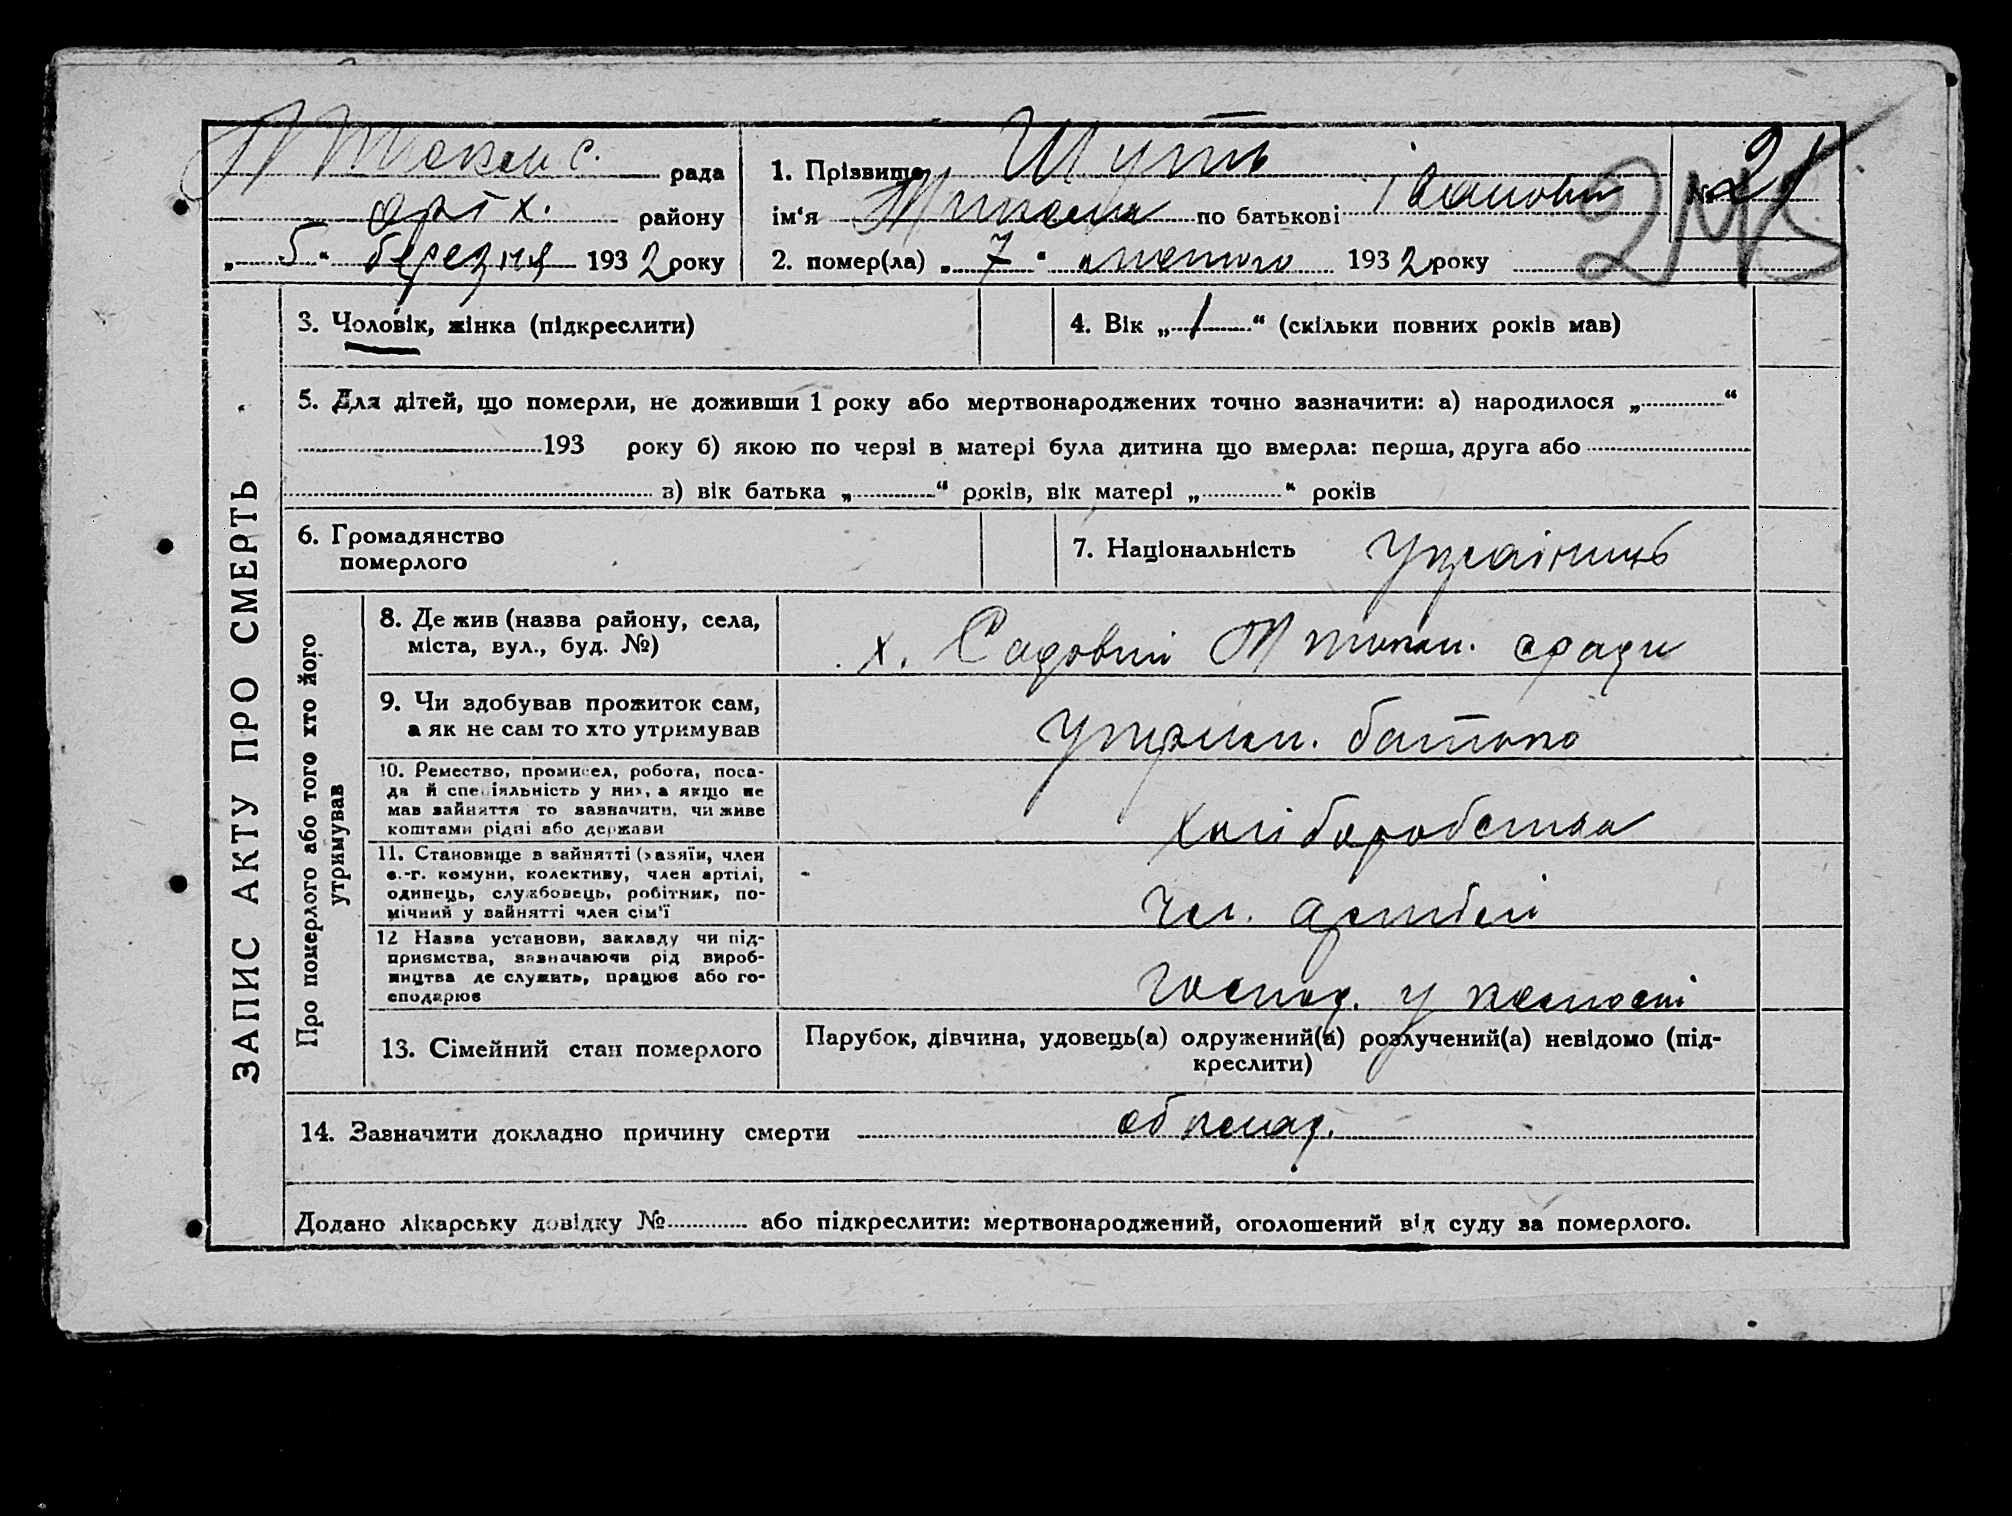 рада 1. Прізвище Шуть № 21
оріх. району ім'я Микола по батькові Іванович
„ 5 “ березня 1932 року 2. помер(ла) „ 7 “ лютого 1932 року
ЗАПИС АКТУ ПРО СМЕРТЬ
3. Чоловік, жінка (підкреслити) 4. Вік „ 1 “ (скільки повних років мав)
5. Для дітей, що померли, не доживши 1 року або мертвонароджених точно зазначити: а) народилося „ “
193 року б) якою по черзі в матері була дитина що вмерла: перша, друга або
в) вік батька „ “ років, вік матері „ “ років
6. Громадянство
померлого
7. Національність Українець
Про померлого або того хто його
утримував
8. Де жив (назва району, села,
міста, вул., буд. №)
х. Садовий сради
9. Чи здобував прожиток сам,
а як не сам то хто утримував
Утрим. батько
10. Ремество, промисел, робота, поса-
да й спеціяльність у них, а якщо не
мав зайняття то зазначити, чи живе
коштами рідні або держави
хліборобства
11. Становище в зайнятті (хазяїн, член
с.-г. комуни, колективу, член артілі,
одинець, службовець, робітник, по-
мічний у зайнятті член сім'ї
чл. артілі
12 Назва установи, закладу чи під-
приємства, зазначаючи рід вироб-
ництва де служить, працює або го-
сподарює
господ. у
13. Сімейний стан померлого
Парубок, дівчина, удовець(а) одружений(а) розлучений(а) невідомо (під-
креслити)
14. Зазначити докладно причину смерти
Додано лікарську довідку № або підкреслити: мертвонароджений, оголошений від суду за померлого.